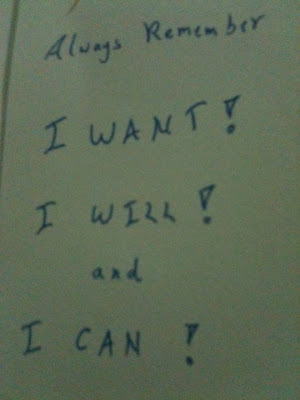 Always Remember
I WANT!
I WILL!
and
I CAN !